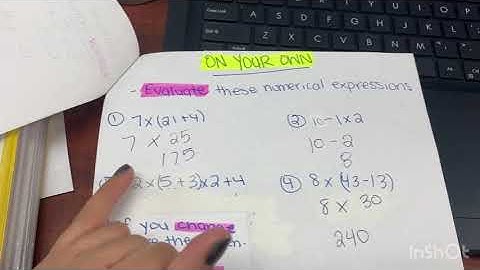 ON YOUR OWN
- Evaluate these numerical expressions
① 7×(21+4)
7 × 25
175
② 10-1×2
10-2
8
2×(5+3)×2+4
④ 8×(43-13)
8× 30
240
If you change
the
InShOt